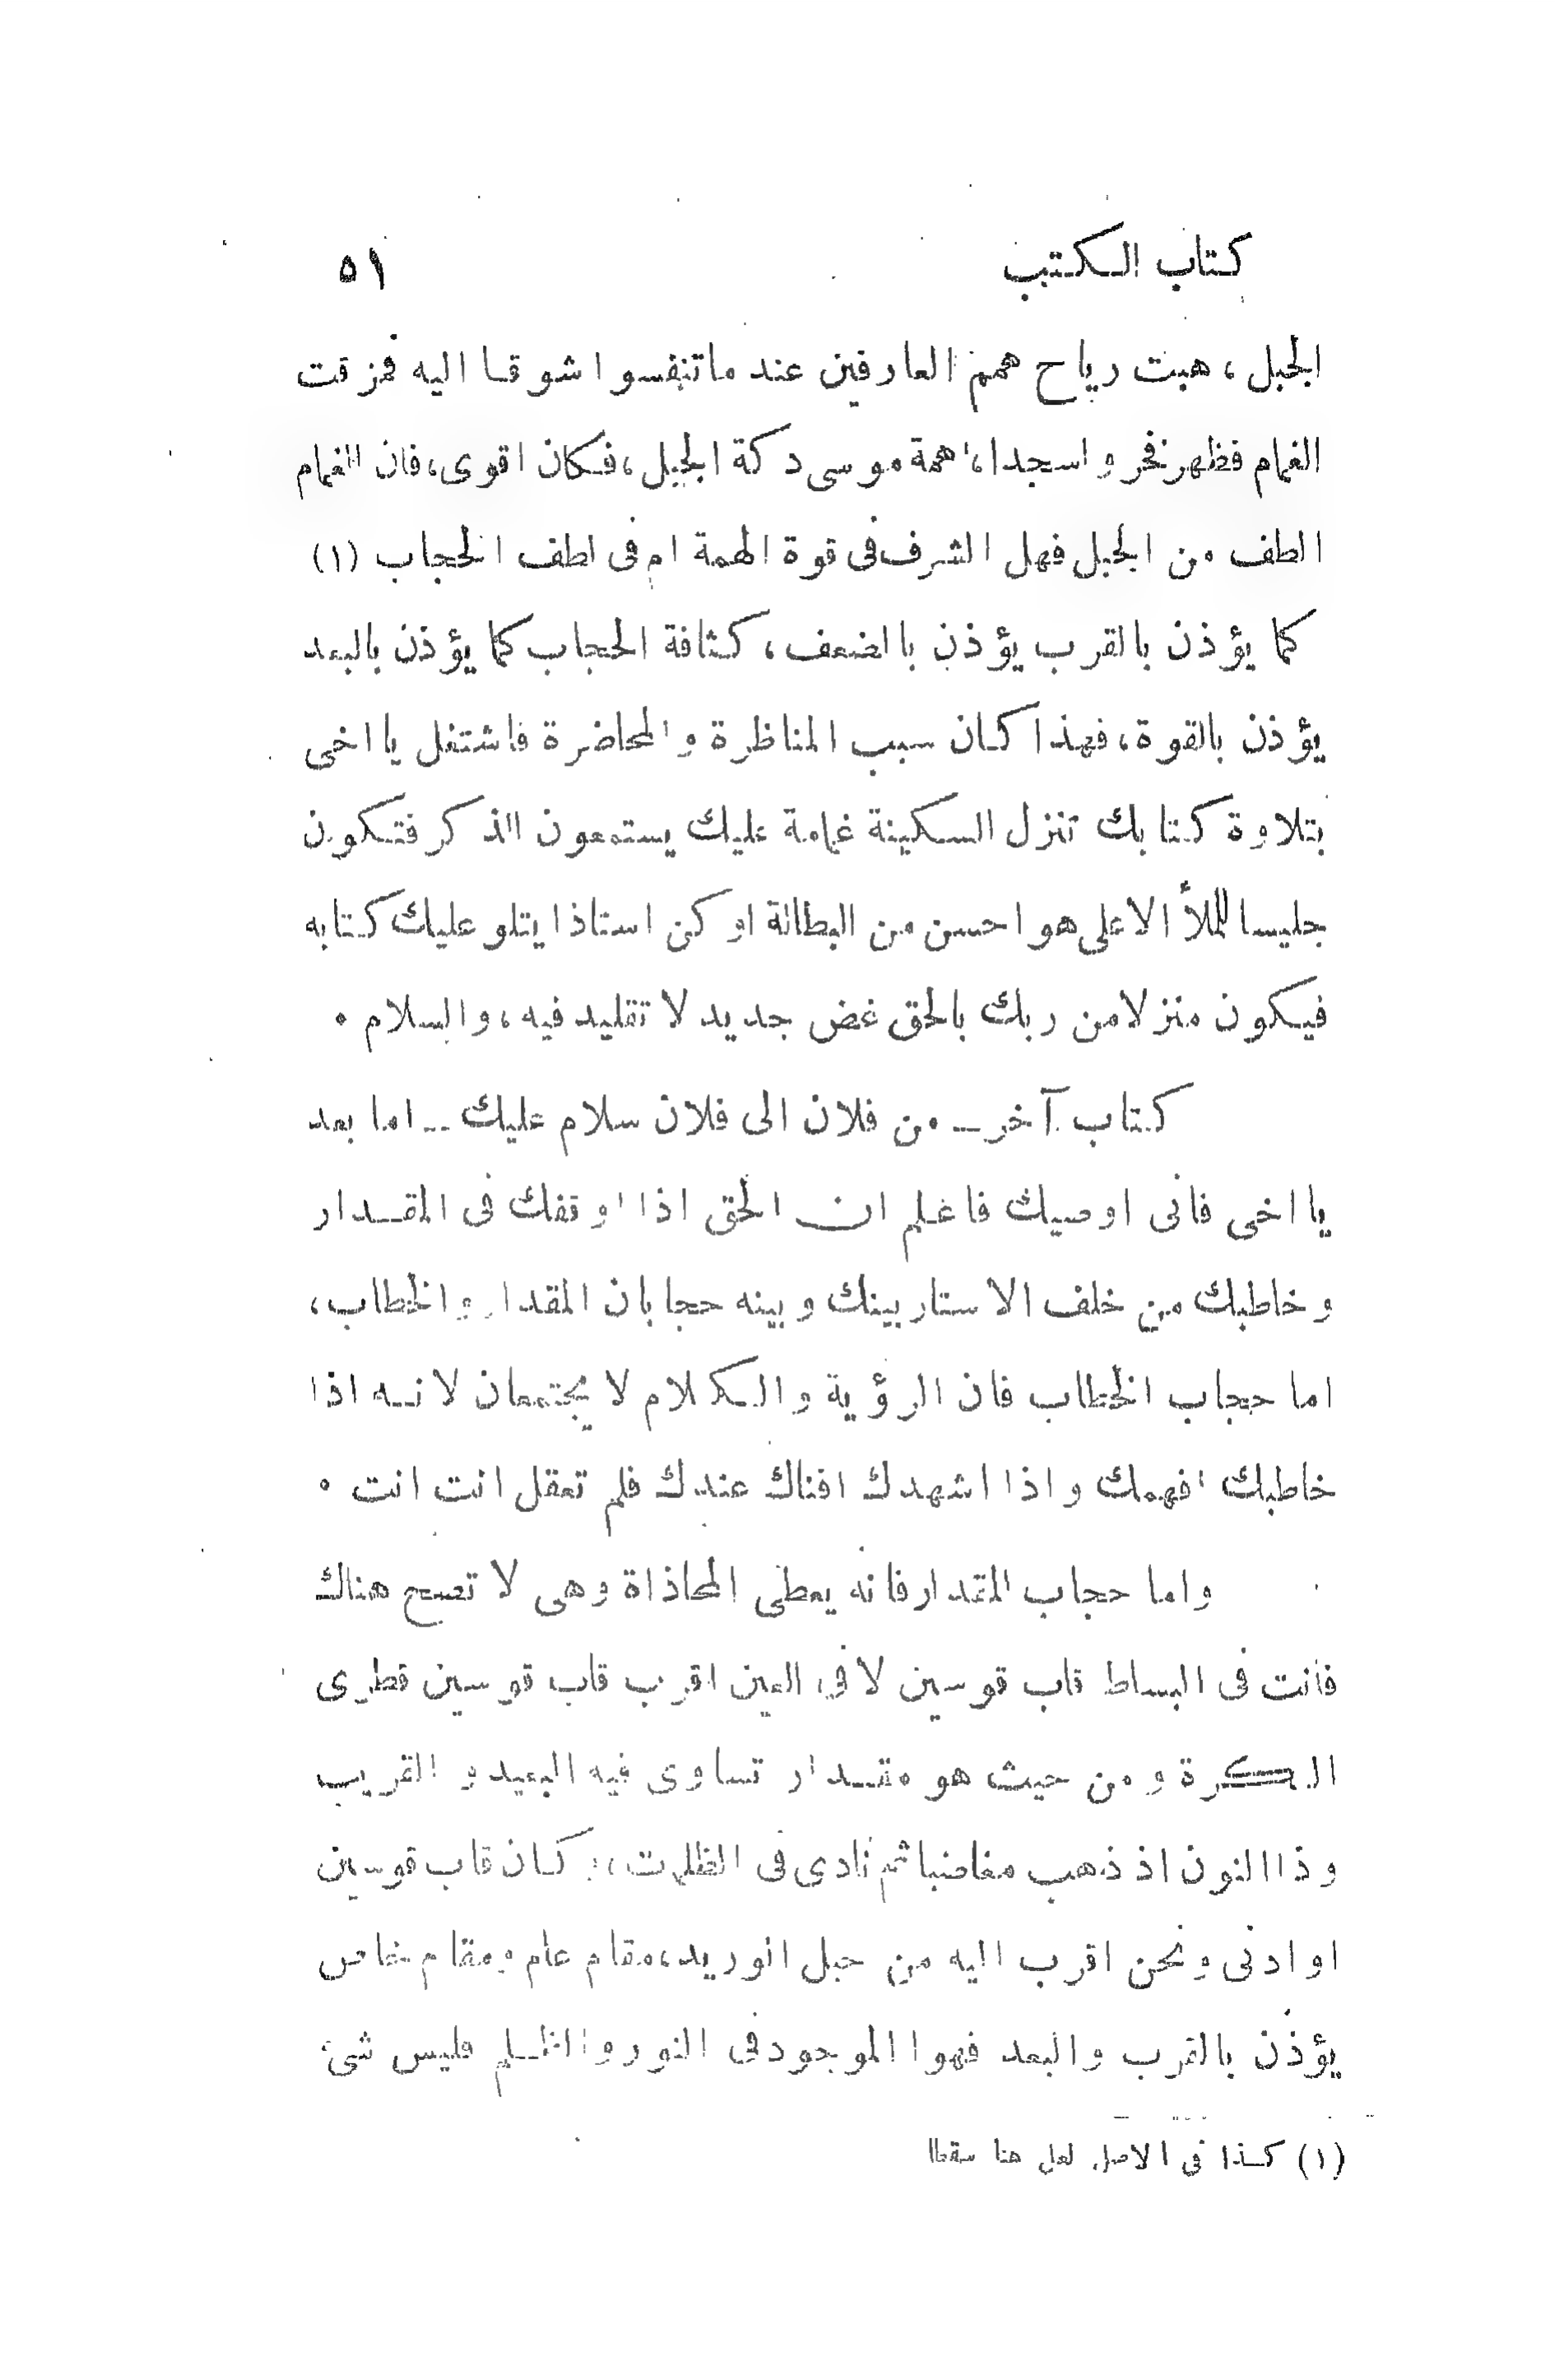 كتاب الكتب ٥١
الجبل، هبت رياح همم العارفين عند ماتنفسوا شوقا اليه فمزقت
الغمام فظهر فخر واسجدا، همة موسى دكة الجبل، فكان اقوى، فان الغمام
الطف من الجبل فهل الشرف فى قوة الهمة ام فى لطف الحجاب (١)
كما يؤذن بالقرب يؤذن باالضعف، كثافة الحجاب كما يؤذن بالبعد
يؤذن بالقوة، فهذا كان سبب المناظرة والمحاضرة فاشتغل يا اخى
بتلاوة كتابك تنزل السكينة غمامة عليك يستمعون الذكر فتكون
جليسا للملأ الاعلى هو احسن من البطالة او كن استاذا يتلو عليك كتابه
فيكون منزلا من ربك بالحق غض جديد لا تقليد فيه، والسلام •
كتاب آخر ــ من فلان الى فلان سلام عليك ــ اما بعد
يا اخى فانى اوصيك فاعلم ان الحق اذا اوقفك فى المقدار
وخاطبك من خلف الاستار بينك وبينه حجابان المقدار والخطاب،
اما حجاب الخطاب فان الرؤية والكلام لا يجتمعان لانه اذا
خاطبك افهمك واذا اشهدك افناك عندك فلم تعقل انت انت •
واما حجاب المقدار فانه يعطى المحاذاة وهى لا تصح هناك
فانت فى البساط قاب قوسين لا فى العين اقرب قاب قوسين قطرى
الكرة ومن حيث هو مقدار تساوى فيه البعيد والقريب
وذا النون اذ ذهب مغاضبا ثم نادى فى الظلمت، كان قاب قوسين
او ادنى ونحن اقرب اليه من حبل الوريد، مقام عام ومقام خاص
يؤذن بالقرب والبعد فهوا الموجود فى النور والظلم فليس شئ
(١) كذا فى الاصل لعل هنا سقطا